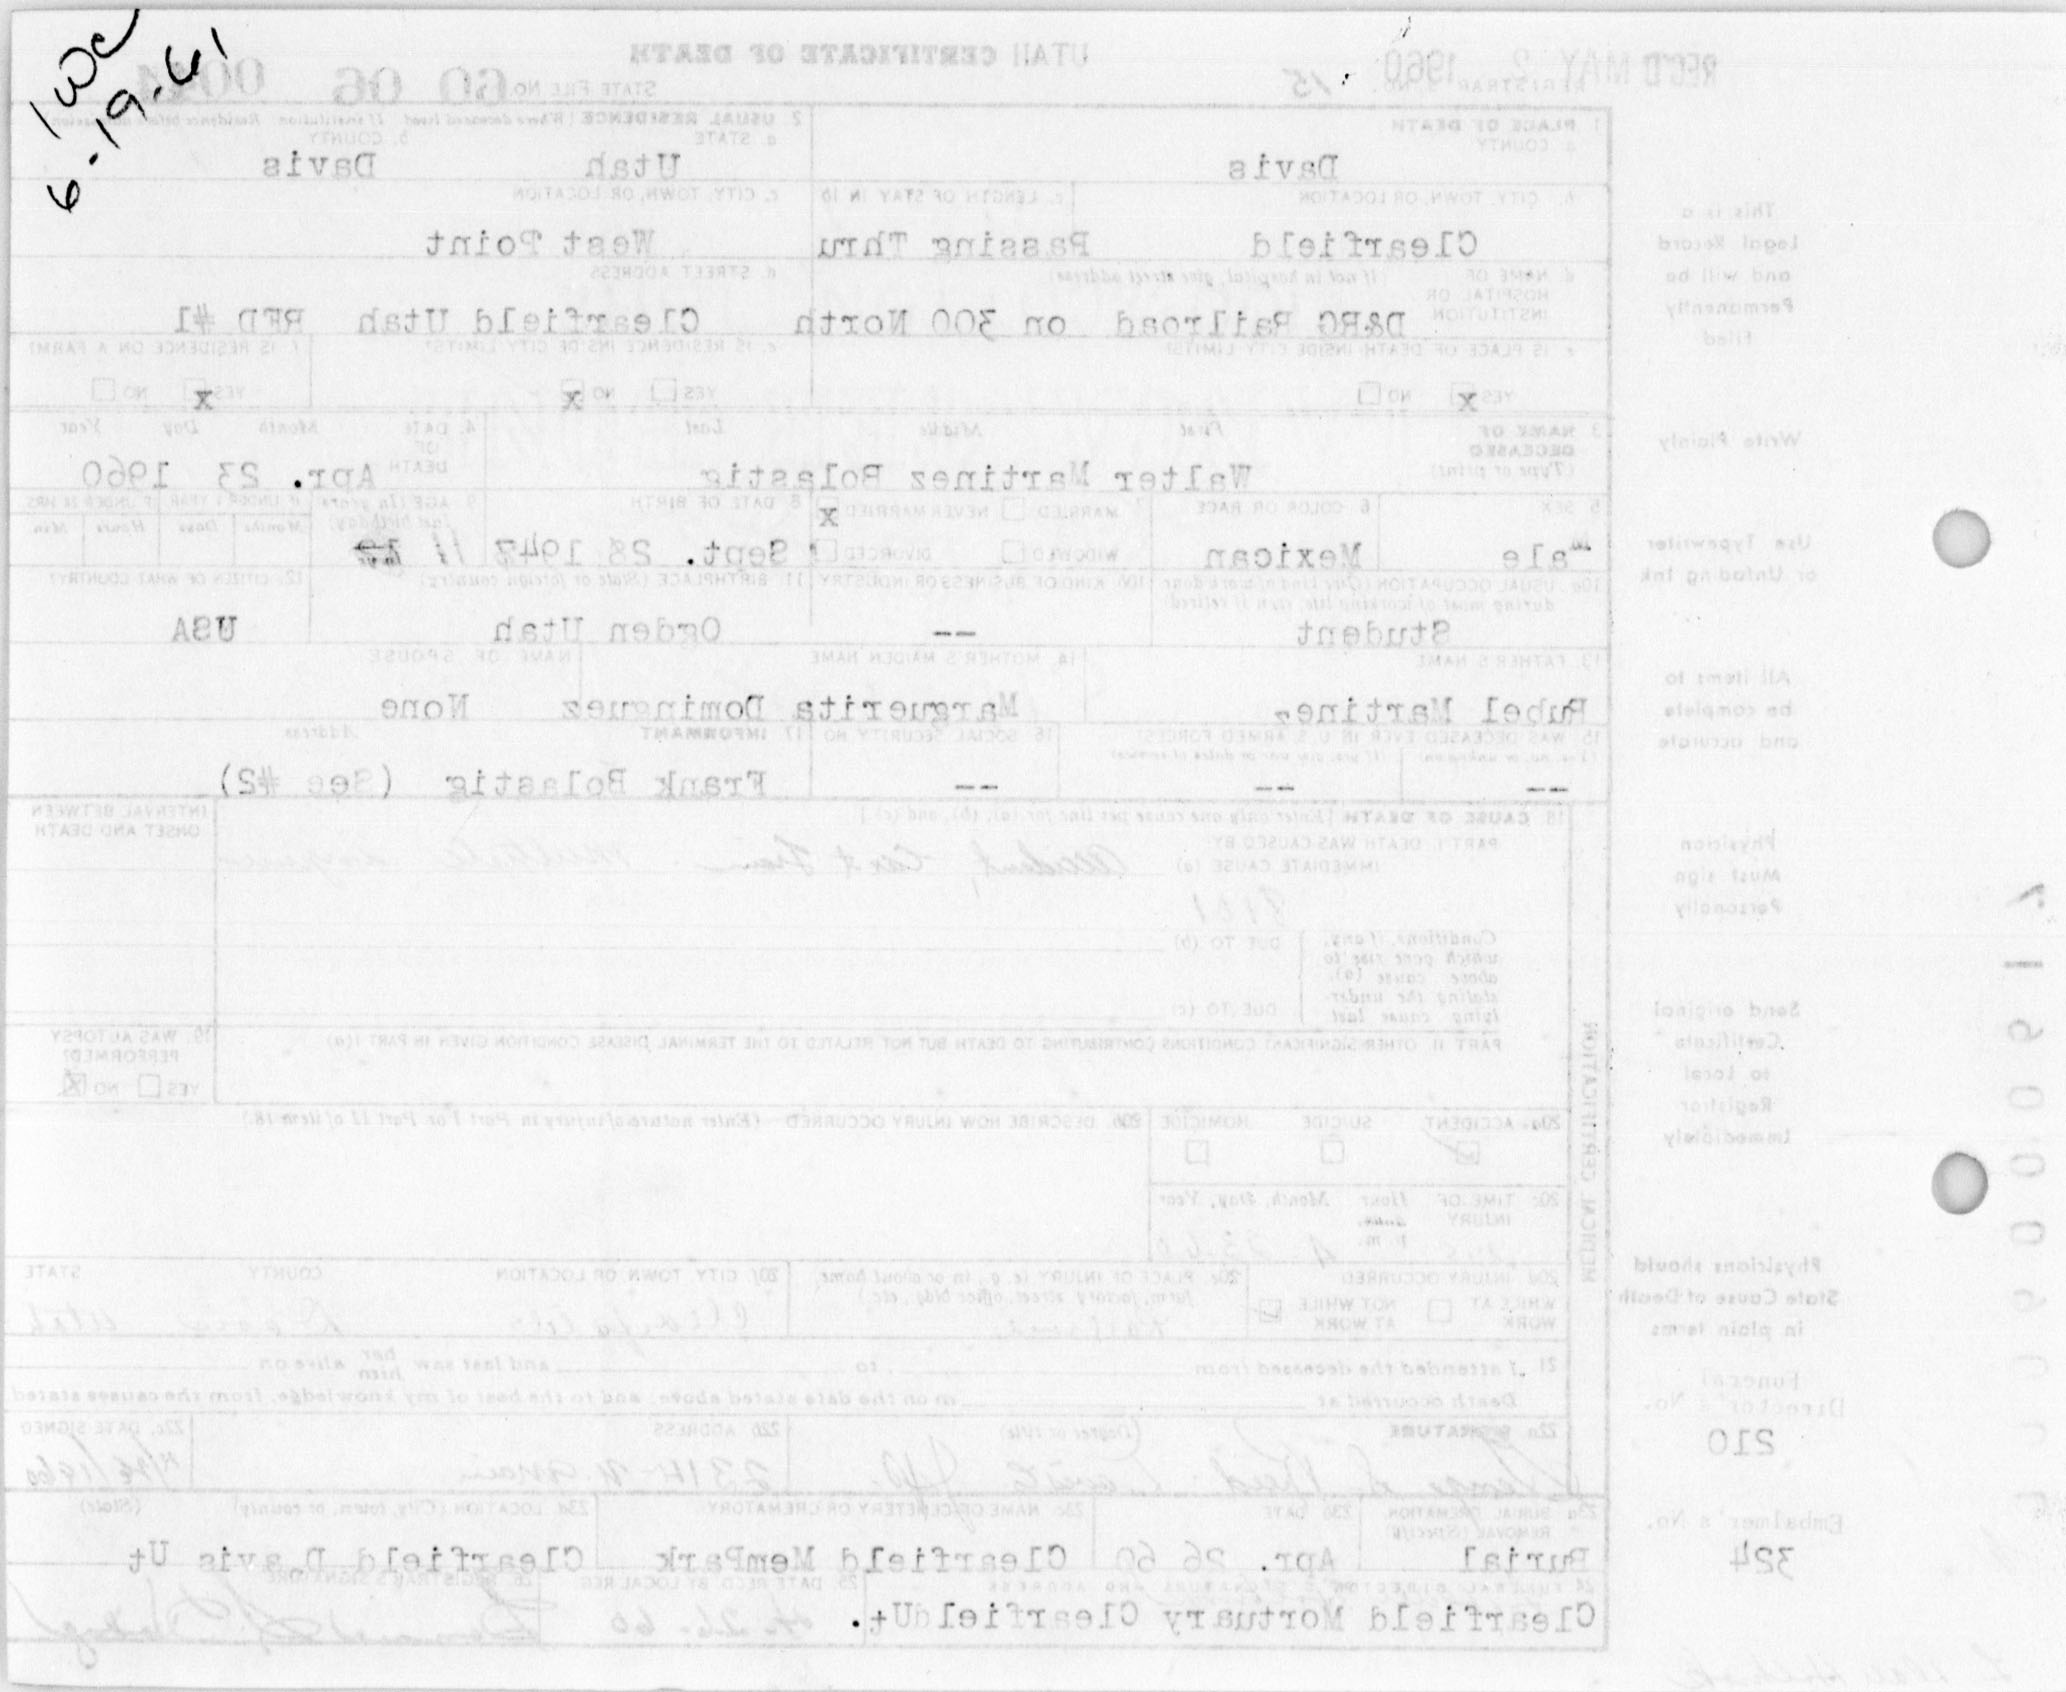 1wc
6-19-61
REC'D MAY 2 1960
UTAH CERTIFICATE OF DEATH
REGISTRAR'S NO. 15
STATE FILE NO. 60 06
1 PLACE OF DEATH
a. COUNTY
Davis
2 USUAL RESIDENCE (Where deceased lived. If institution Residence before admission)
a. STATE
Utah
b. COUNTY
Davis
b. CITY, TOWN, OR LOCATION
Clearfield
c. LENGTH OF STAY IN 1b
Passing Thru
c. CITY, TOWN, OR LOCATION
West Point
d. NAME OF HOSPITAL OR INSTITUTION
(If not in hospital, give street address)
D&RG Railroad on 300 North
d. STREET ADDRESS
Clearfield Utah RFD #1
e. IS PLACE OF DEATH INSIDE CITY LIMITS?
YES x NO
e. IS RESIDENCE INSIDE CITY LIMITS?
YES NO x
f. IS RESIDENCE ON A FARM?
YES x NO
3 NAME OF DECEASED
(Type or print)
First Middle Last
Walter Martinez Bolastig
4. DATE OF DEATH
Month Day Year
Apr. 23 1960
5 SEX
Male
6 COLOR OR RACE
Mexican
7 MARRIED NEVER MARRIED x
WIDOWED DIVORCED
8 DATE OF BIRTH
Sept. 28
9 AGE (In years last birthday)
11
IF UNDER 1 YEAR IF UNDER 24 HRS
Months Days Hours Min
10a USUAL OCCUPATION (Give kind of work done during most of working life, even if retired)
Student
10b. KIND OF BUSINESS OR INDUSTRY
--
11 BIRTHPLACE (State or foreign country)
Ogden Utah
12. CITIZEN OF WHAT COUNTRY?
USA
13. FATHER'S NAME
Rubel Martinez
14. MOTHER'S MAIDEN NAME
Marguerita Dominguez
NAME OF SPOUSE
None
15 WAS DECEASED EVER IN U.S. ARMED FORCES?
(Yes, no, or unknown) (If yes, give war or dates of service)
-- --
16 SOCIAL SECURITY NO
--
17 INFORMANT Address
Frank Bolastig (See #2)
18 CAUSE OF DEATH [Enter only one cause per line for (a), (b), and (c)]
INTERVAL BETWEEN ONSET AND DEATH
PART I. DEATH WAS CAUSED BY
IMMEDIATE CAUSE (a) Accident, Car & Train - Multiple
Conditions, if any, which gave rise to above cause (a), stating the underlying cause last
DUE TO (b)
DUE TO (c)
PART II. OTHER SIGNIFICANT CONDITIONS CONTRIBUTING TO DEATH BUT NOT RELATED TO THE TERMINAL DISEASE CONDITION GIVEN IN PART I (a)
19. WAS AUTOPSY PERFORMED?
YES NO X
MEDICAL CERTIFICATION
20a. ACCIDENT SUICIDE HOMICIDE
20b. DESCRIBE HOW INJURY OCCURRED (Enter nature of injury in Part I or Part II of item 18.)
20c TIME OF INJURY
Hour Month, Day, Year
a.m.
p.m.
20d INJURY OCCURRED
WHILE AT WORK NOT WHILE AT WORK
20e PLACE OF INJURY (e.g., in or about home, farm, factory, street, office bldg., etc.)
20f CITY, TOWN, OR LOCATION COUNTY STATE
Clearfield Davis Utah
21. I attended the deceased from to and last saw her him alive on
Death occurred at m on the date stated above; and to the best of my knowledge, from the causes stated
22a SIGNATURE (Degree or title)
22b ADDRESS
22c. DATE SIGNED
23a BURIAL, CREMATION, REMOVAL (Specify)
Burial
23b DATE
Apr. 26 60
23c NAME OF CEMETERY OR CREMATORY
Clearfield MemPark
23d LOCATION (City, town, or county) (State)
Clearfield Davis Ut
24 FUNERAL DIRECTOR'S SIGNATURE AND ADDRESS
Clearfield Mortuary Clearfield Ut.
25. DATE REC'D BY LOCAL REG
4-26-60
26. REGISTRAR'S SIGNATURE
This is a
Legal Record
and will be
Permanently
filed
Write Plainly
Use Typewriter
or Unfading Ink
All items to
be complete
and accurate
Physician
Must sign
Personally
Send original
Certificate
to Local
Registrar
Immediately
Physicians should
State Cause of Death
in plain terms
Funeral
Director's No.
210
Embalmer's No.
324